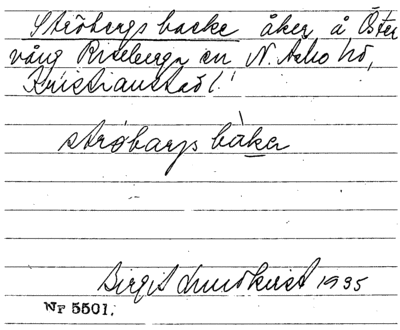 Ströbergs backe åker å Öster
vång Riseberga sn N. Åsbo hd,
Kristianstad l.
strøbarys bàka
Birgit Lundkvist 1935
Nr 5501.